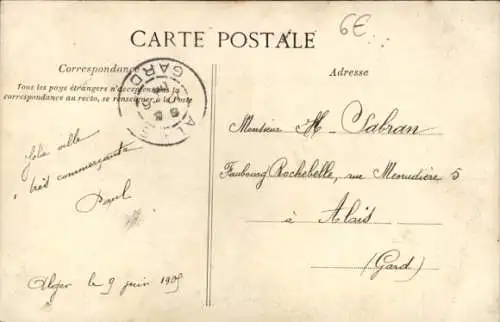 6€
CARTE POSTALE
Correspondance
Adresse
Tous les pays étrangers n'acceptent pas la
correspondance au recto, se renseigner à la Poste
GARD
Jolie ville
très commerçante
Paul
Alger le 9 juin 1905
Monsieur H. Sabran
Faubourg Rochebelle, rue Menudière 5
à Alais
(Gard)